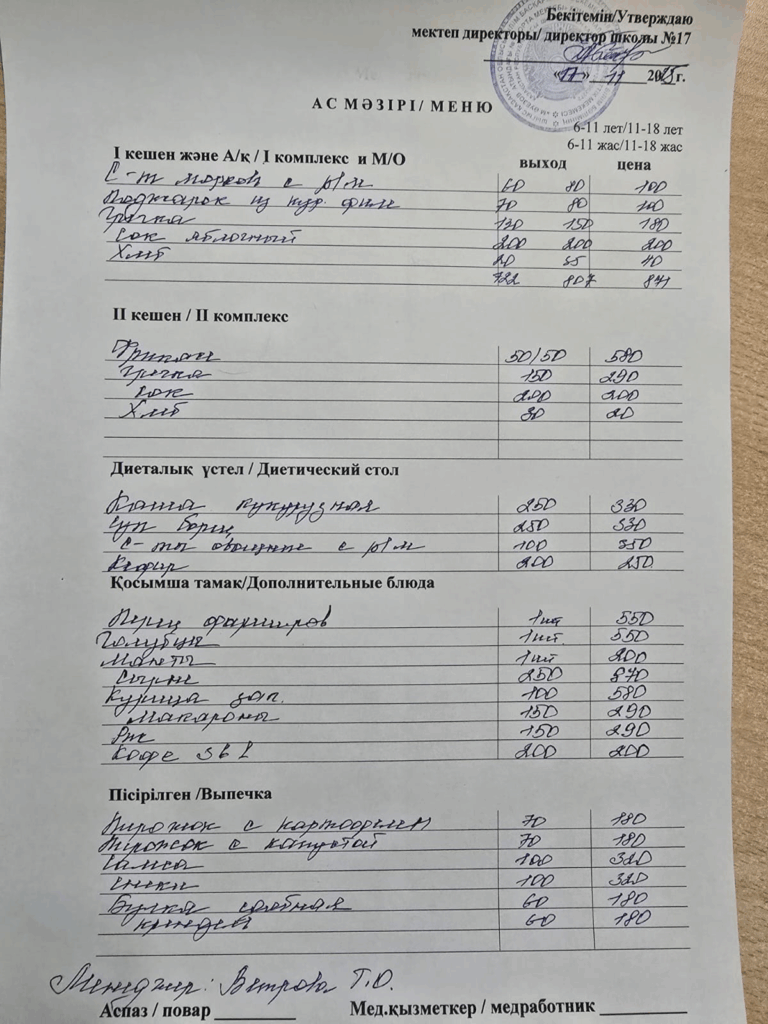 Бекітемін/Утверждаю
мектеп директоры/ директор школы №17
«17» 11 2025г.
АС МӘЗІРІ/ МЕНЮ
6-11 лет/11-18 лет
6-11 жас/11-18 жас
І кешен және А/қ / І комплекс и М/О выход цена
С-т морков с р/м 60 80 100
Поджарок из кур. филе 70 80
Гречка 130 150 180
Сок яблочный 200 200 200
Хлеб 20 35 40
722 807 871
ІІ кешен / ІІ комплекс
50/50 580
Гречка 150 290
Сок 200 200
Хлеб 30 20
Диеталық үстел / Диетический стол
Каша кукурузная 250 330
Суп борщ 250 330
С-т овощные с р/м 100 350
Кефир 200 250
Қосымша тамақ/Дополнительные блюда
Перец фарширов 1шт 550
Голубцы 1шт. 550
Манты 1шт 200
250 870
Курица зап. 100 580
Макароны 150 290
Рис 150 290
Кофе 3в1 200 200
Пісірілген /Выпечка
Пирожок с картофелем 70 180
Пирожок с капустой 70 180
Самса 100 320
100 320
Булка сдобная 60 180
крендель 60 180
Менеджер: Ветрова Т.О.
Аспаз / повар Мед.қызметкер / медработник